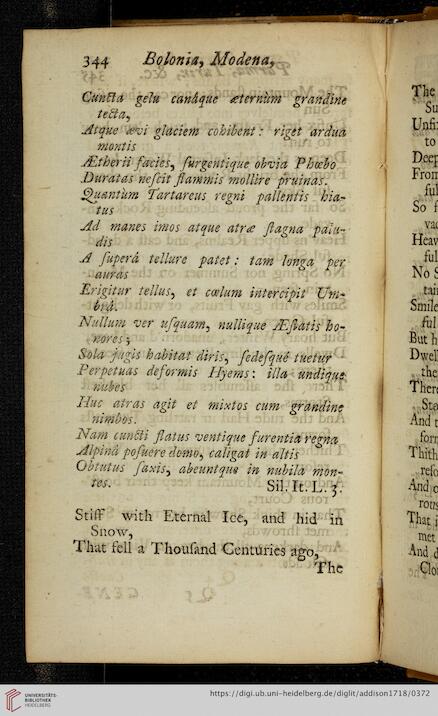 344 Bolonia, Modena,
Cuncta gelu canâque æternùm grandine
tecta,
Atque ævi glaciem cohibent: riget ardua
montis
Ætherii facies, ſurgentique obvia Phœbo
Duratas neſcit flammis mollire pruinas.
Quantùm Tartareus regni pallentis hia-
tus
Ad manes imos atque atræ ſtagna palu-
dis
A ſuperâ tellure patet: tam longa per
auras
Erigitur tellus, et cœlum intercipit Um-
brâ.
Nullum ver uſquam, nullique Æſtatis ho-
nores;
Sola jugis habitat diris, ſedeſquè tuetur
Perpetuas deformis Hyems: illa undique
nubes
Huc atras agit et mixtos cum grandine
nimbos.
Nam cuncti flatus ventique furentia regna
Alpinâ poſuere domo, caligat in altis
Obtutus ſaxis, abeuntque in nubila mon-
tes. Sil. It. L. 3.
Stiff with Eternal Ice, and hid in
Snow,
That fell a Thouſand Centuries ago,
The
The
Su
Unfi
to
Deep
From
ful
So f
vaſ
Heav
ful
No S
tai
Smile
ful
But h
Dwel
the
There
Sta
And t
forn
Thith
reſo
And
rous
That i
met
And d
Clo
UNIVERSITÄTS-
BIBLIOTHEK
HEIDELBERG
https://digi.ub.uni-heidelberg.de/diglit/addison1718/0372